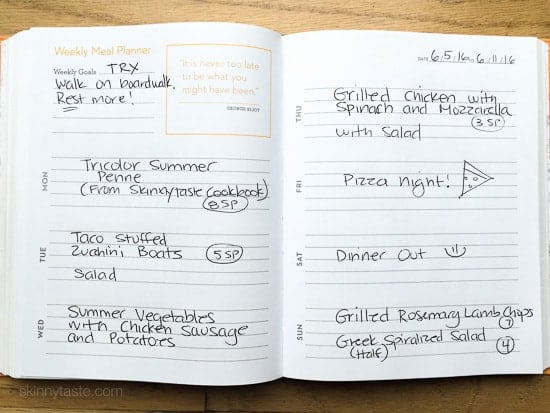 Weekly Meal Planner
Weekly Goals TRX
Walk on boardwalk.
Rest more!
"It is never too late
to be what you
might have been."
GEORGE ELIOT
MON
Tricolor Summer
Penne
(From Skinnytaste Cookbook)
8 SP
TUE
Taco Stuffed
Zucchini Boats 5 SP
Salad
WED
Summer Vegetables
with Chicken Sausage
and Potatoes
DATE 6/5/16 TO 6/11/16
THU
Grilled Chicken with
Spinach and Mozzarella
3 SP
with Salad
FRI
Pizza night!
SAT
Dinner Out
SUN
Grilled Rosemary Lamb Chops
7
Greek Spiralized Salad
(Half) 4
skinnytaste.com